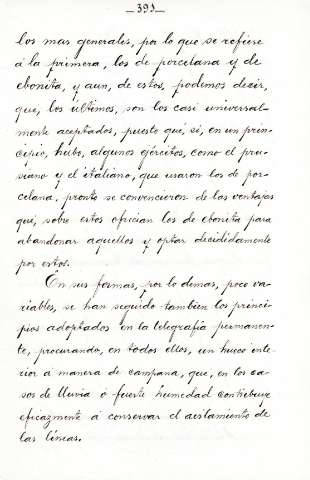 —391—
los mas generales, por lo que se refiere
á la primera, los de porcelana y de
ebonita, y aun, de estos, podemos decir,
que, los últimos, son los casi universal-
mente aceptados, puesto que si, en un prin-
cipio, hubo, algunos ejércitos, como el pru-
siano y el italiano, que usaron los de por-
celana, pronto se convencieron de las ventajas
que, sobre estos ofrecian los de ebonita para
abandonar aquellos y optar decididamente
por estos.
En sus formas, por lo demas, poco va-
riables, se han seguido tambien los princi-
pios adoptados en la telegrafia permanen-
te, procurando, en todos ellos, un hueco inte-
rior a manera de campana, que, en los ca-
sos de lluvia ó fuerte humedad contribuye
eficazmente á conservar el aislamiento de
las líneas.